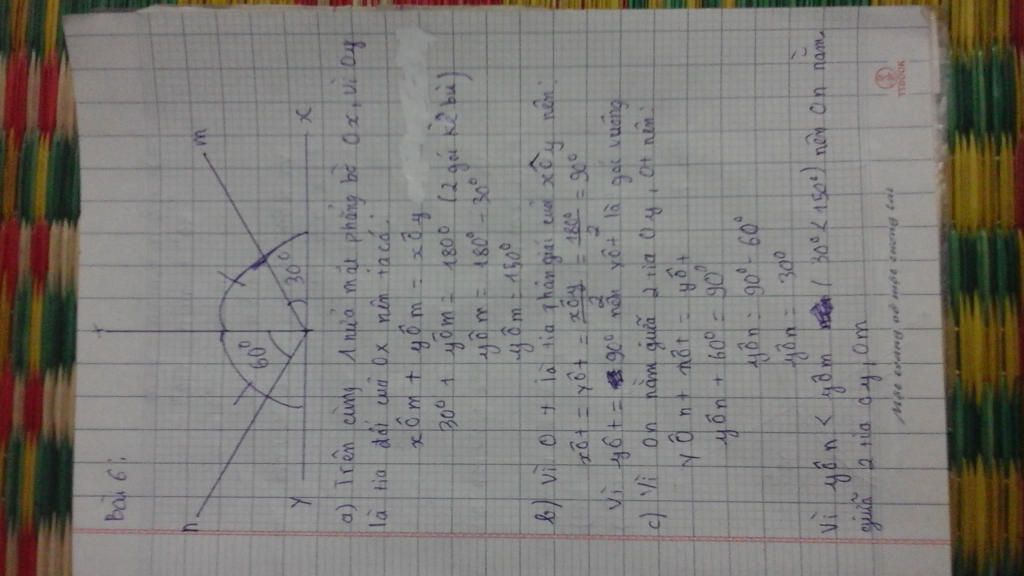 Bài 6:
n
m
t
60°
30°
y
x
a) Trên cùng 1 nửa mặt phẳng bờ Ox, vì Oy
là tia đối của Ox nên ta có:
xÔm + yÔm = xÔy
30° + yÔm = 180° (2 góc kề bù)
yÔm = 180° - 30°
yÔm = 150°
b) Vì Ot là tia phân giác của xÔy nên:
xÔt = yÔt = xÔy/2 = 180°/2 = 90°
Vì yÔt = 90° nên yÔt là góc vuông
c) Vì On nằm giữa 2 tia Oy, Ot nên:
yÔn + nÔt = yÔt
yÔn + 60° = 90°
yÔn = 90° - 60°
yÔn = 30°
Vì yÔn < yÔm (30° < 150°) nên On nằm
giữa 2 tia Oy, Om
TIBOOK